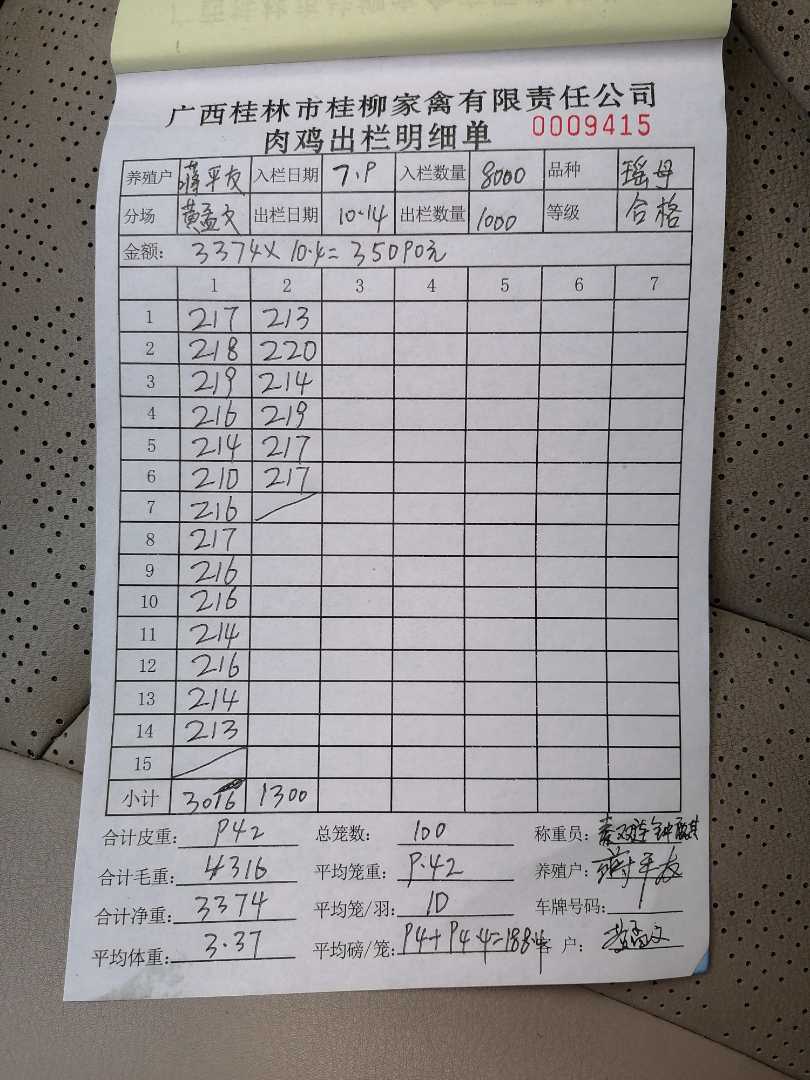 广西桂林市桂柳家禽有限责任公司
肉鸡出栏明细单 0009415
养殖户 蒋平友 入栏日期 7.9 入栏数量 8000 品种 瑶母
分场 黄孟文 出栏日期 10.14 出栏数量 1000 等级 合格
金额: 3374×10.4=35090元
1 2 3 4 5 6 7
1 217 213
2 218 220
3 219 214
4 216 219
5 214 217
6 210 217
7 216
8 217
9 216
10 216
11 214
12 216
13 214
14 213
15
小计 3016 1300
合计皮重: 942 总笼数: 100 称重员:
合计毛重: 4316 平均笼重: 9.42 养殖户: 蒋平友
合计净重: 3374 平均笼/羽: 10 车牌号码:
平均体重: 3.37 平均磅/笼: 94+94.4=188.4 客户: 黄孟文